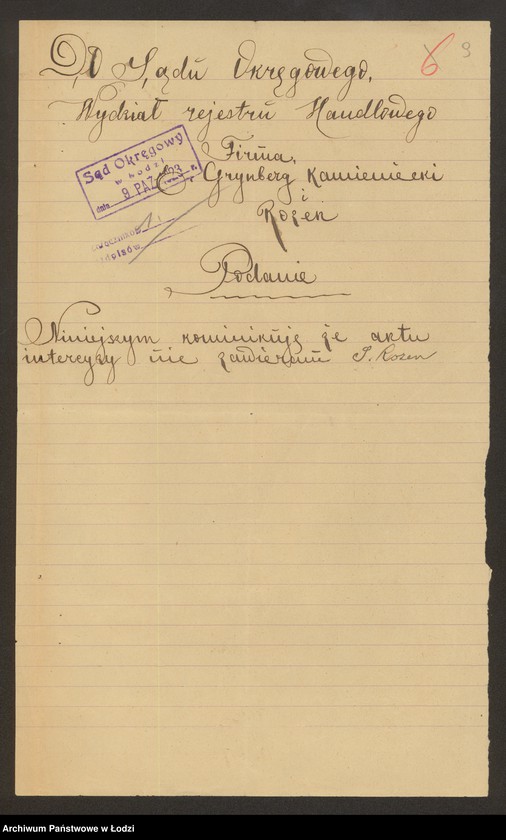 6 9
Do Sądu Okręgowego,
Wydział rejestru Handlowego
Sąd Okręgowy
w Łodzi
dnia 9 PAŹ 1923 r.
Firma,
Grynberg Kamieniecki
i
Rozen
załączników 1
odpisów
Podanie
Niniejszym kominikuję że aktu
intercyzy nie zawieram I. Rozen
Archiwum Państwowe w Łodzi